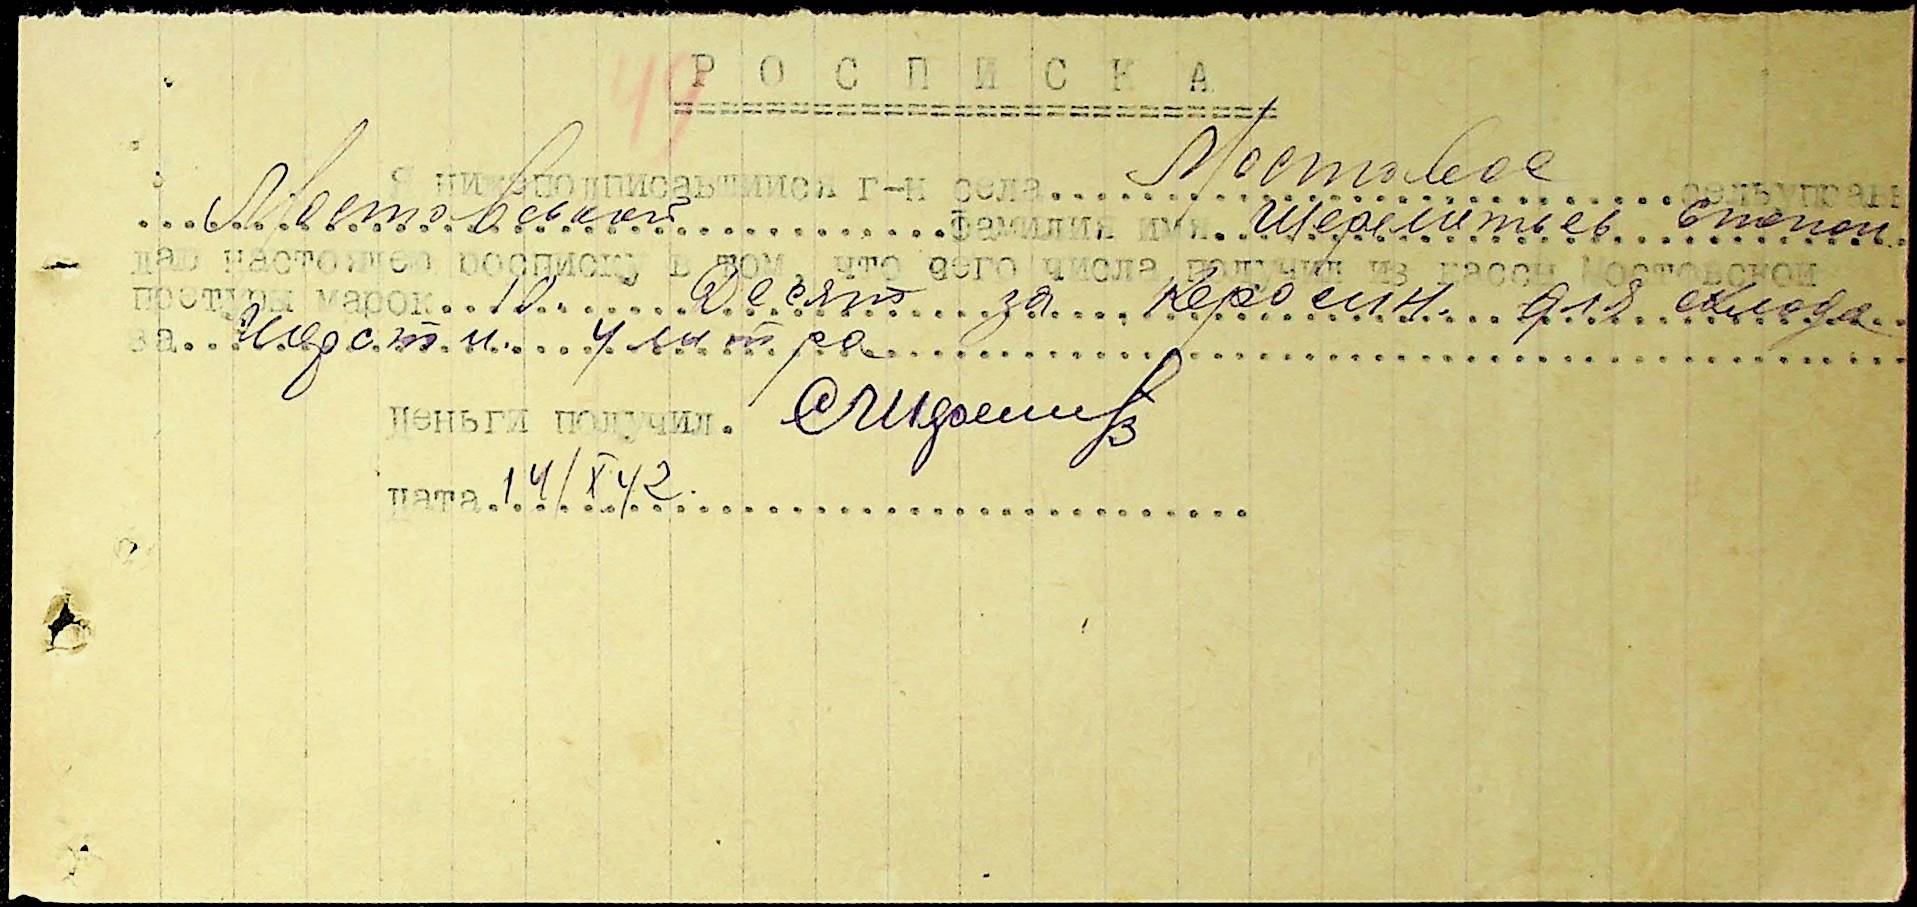 49
Р О С П И С К А
Я нижеподписавшийся г-н села...Мостовое...сельуправы
...Мостовской...фамилия имя. Шереметьев Степан
дал настоящею росписку в том, что сего числа получил из кассы Мостовской
претуры марок..10. Десять за керосин. для склада
за.. 4 литра
Деньги получил.
дата.14/X 42.